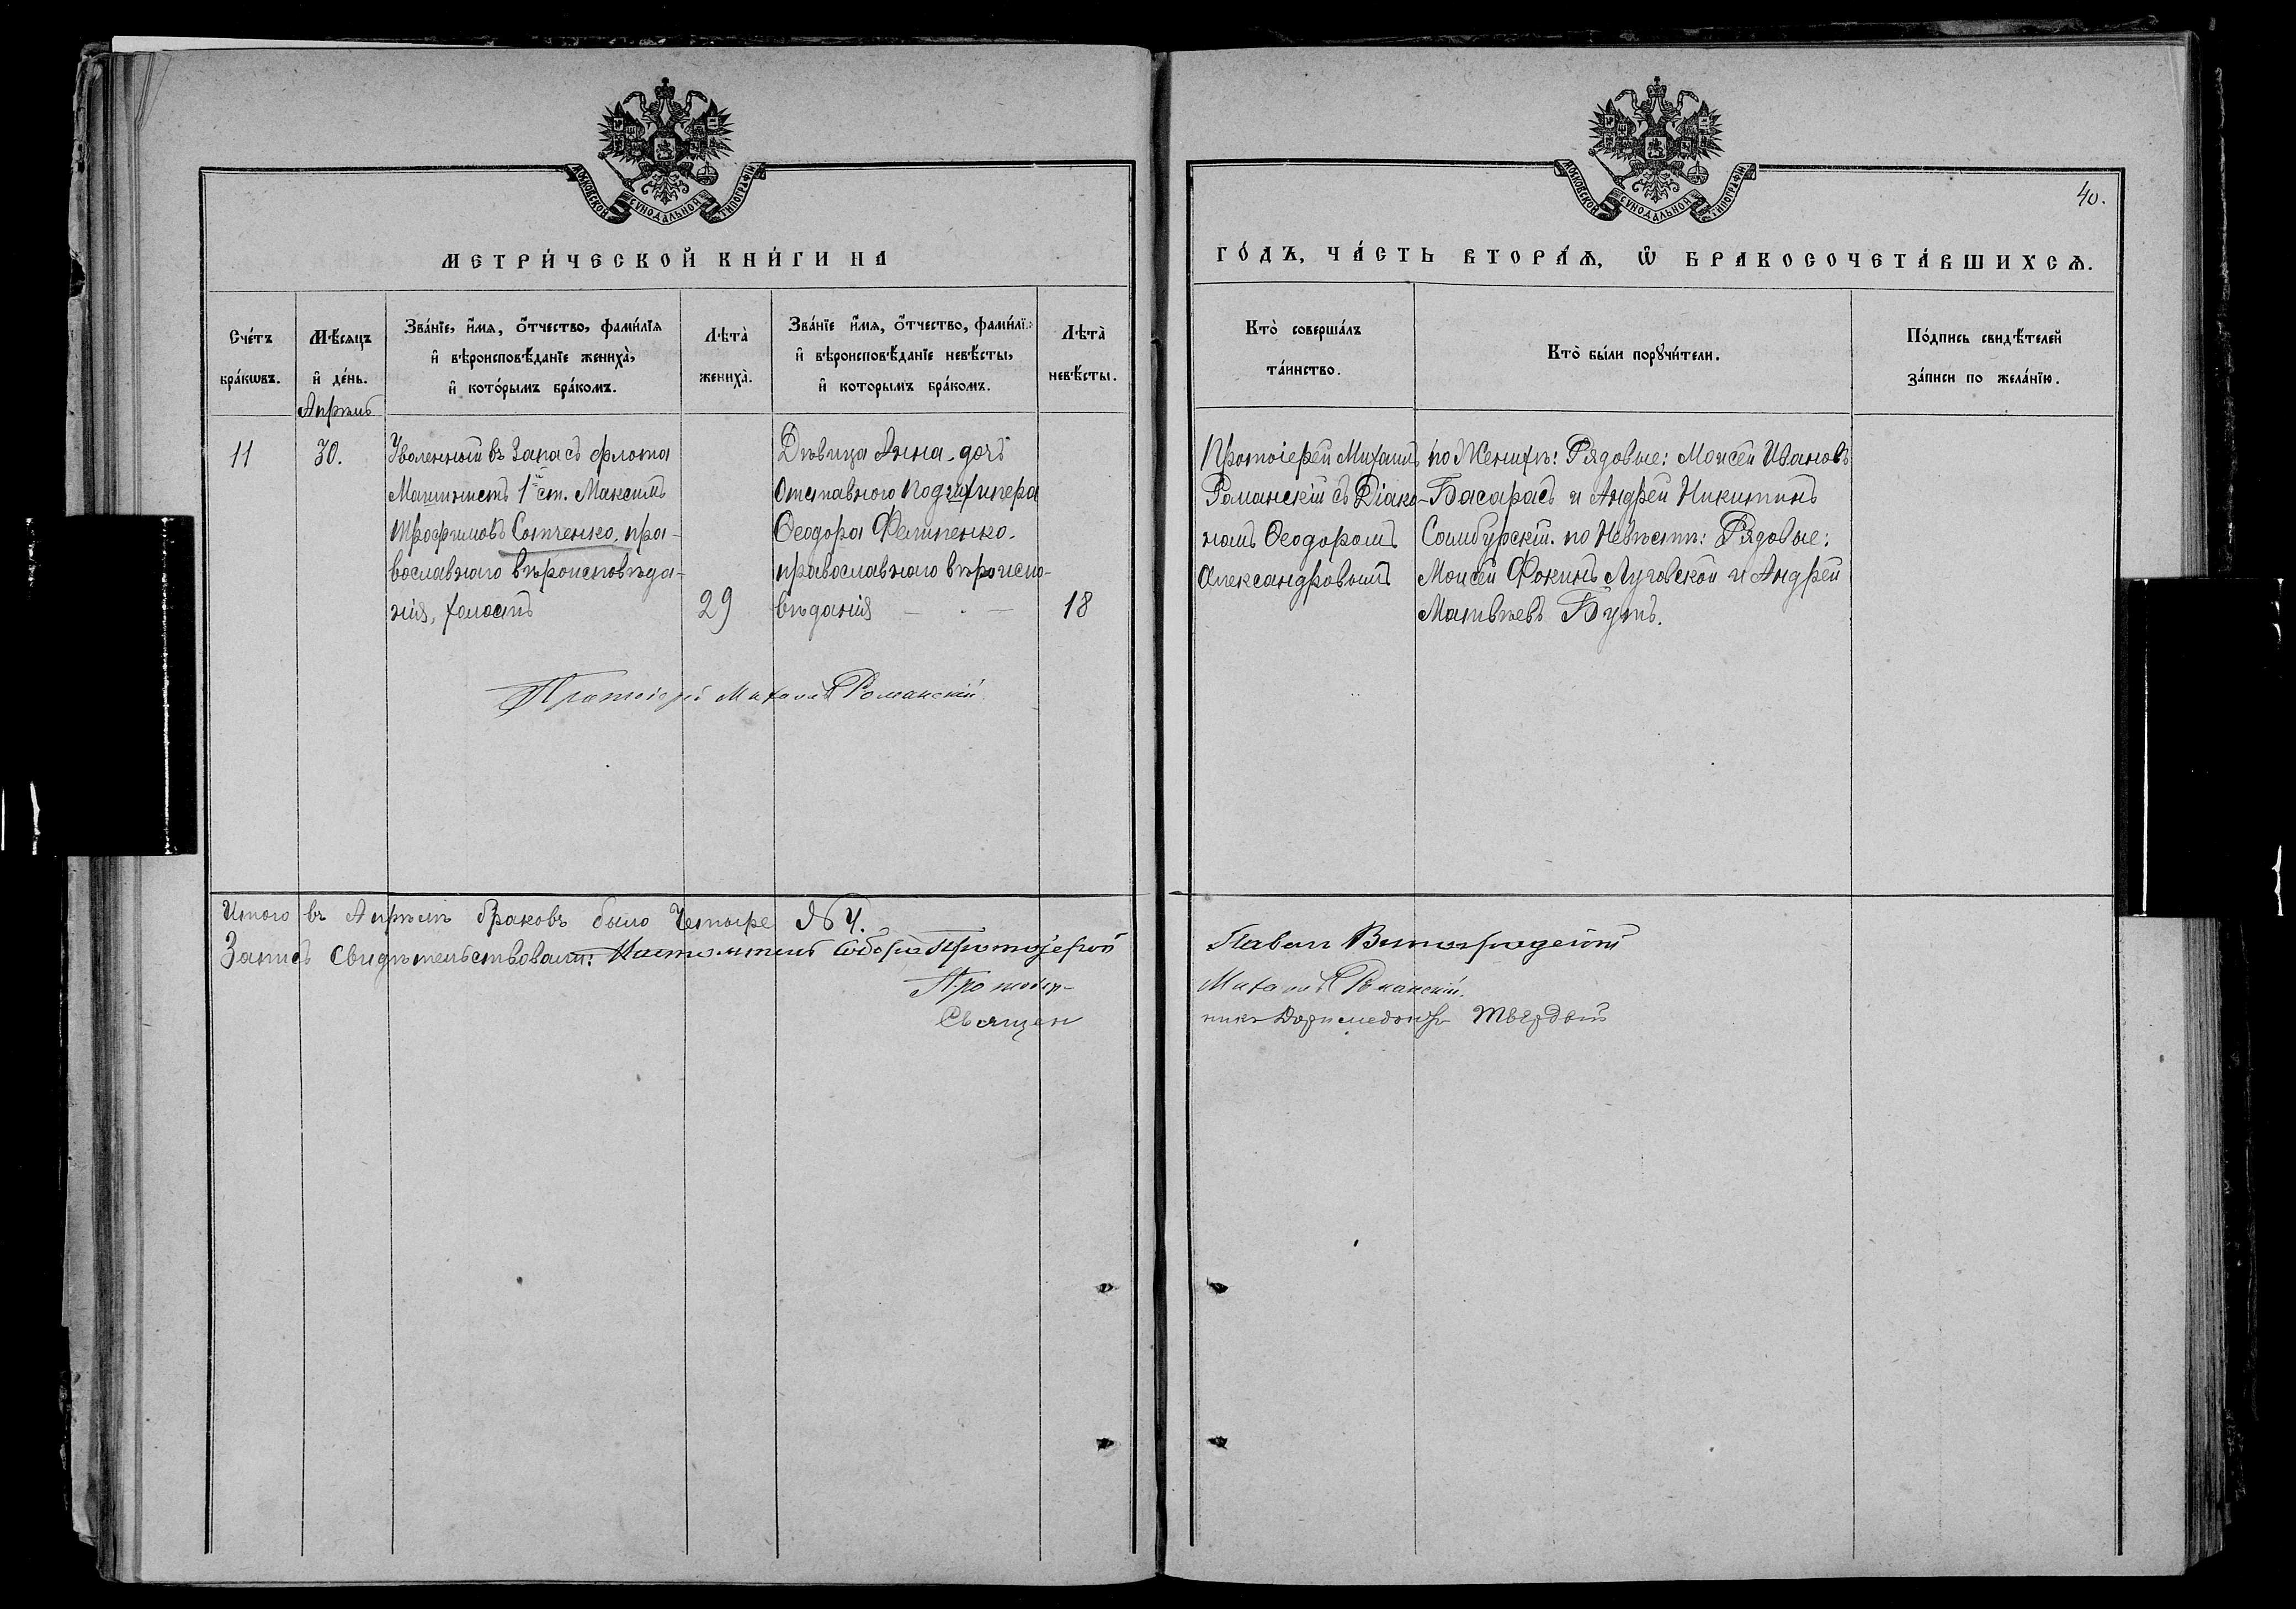 МОСКОВСКОЙ СУНОДАЛЬНОЙ ТИПОГРАФІИ
МЕТРИ́ЧЕСКОЙ КНИ́ГИ НА
Сче́тъ бра́кѡвъ.
Мѣ́сяцъ и҆ де́нь.
Зва́нїе, и҆́мѧ, ѻ҆́тчество, фами́лїѧ
и҆ вѣроисповѣ́данїе женихà,
и҆ кото́рымъ бра́комъ.
Лѣтà женихà.
Зва́нїе и҆́мѧ, ѻ҆́тчество, фами́лї
и҆ вѣроисповѣ́данїе невѣ́сты,
и҆ которымъ бра́комъ.
Лѣтà невѣ́сты.
Апрѣль
11
30.
Уволенный въ Запасъ флота
Машинистъ 1й ст. Максимъ
Трофимовъ Сотченко, пра-
вославнаго вѣроисповѣда-
нія, холостъ
29
Дѣвица Анна, дочь
Отставного Подшхипера
Ѳеодора Филипенко.
православнаго вѣроиспо-
вѣданія
18
Протоіерей Михаилъ Романскій
Итого въ Апрѣлѣ браковъ было Четыре № 4.
Запись Свидѣтельствовали: Настоятель Собора Протоіерей
Протоіер-
Священ
МОСКОВСКОЙ СУНОДАЛЬНОЙ ТИПОГРАФІИ
40.
ГО́ДЪ, ЧА́СТЬ ВТОРА́Ѧ, Ѡ҆ БРАКОСОЧЕТА́ВШИХСѦ.
Ктò соверша́лъ
та́инство.
Ктò бы́ли порꙋчи́тели.
По́дпись свидѣ́телей
за́писи по жела́нїю.
Протоіерей Михаилъ
Романскій съ Діако-
номъ Ѳеодоромъ
Александровымъ
по Женихѣ: Рядовые: Моисей Ивановъ
Басарабъ и Андрей Никитинъ
Самбурскій. по Невѣстѣ: Рядовые:
Моисей Фокинъ Луговской и Андрей
Матвѣевъ Бутъ.
Павелъ Виноградовъ
Михаилъ Романскій.
никъ Доримедонтъ Твердый